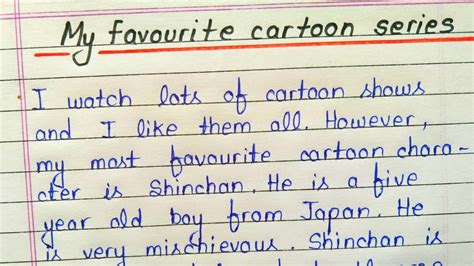 My favourite cartoon series
I watch lots of cartoon shows
and I like them all. However,
my most favourite cartoon chara-
cter is Shinchan. He is a five
year old boy from Japan. He
is very mischievous. Shinchan is